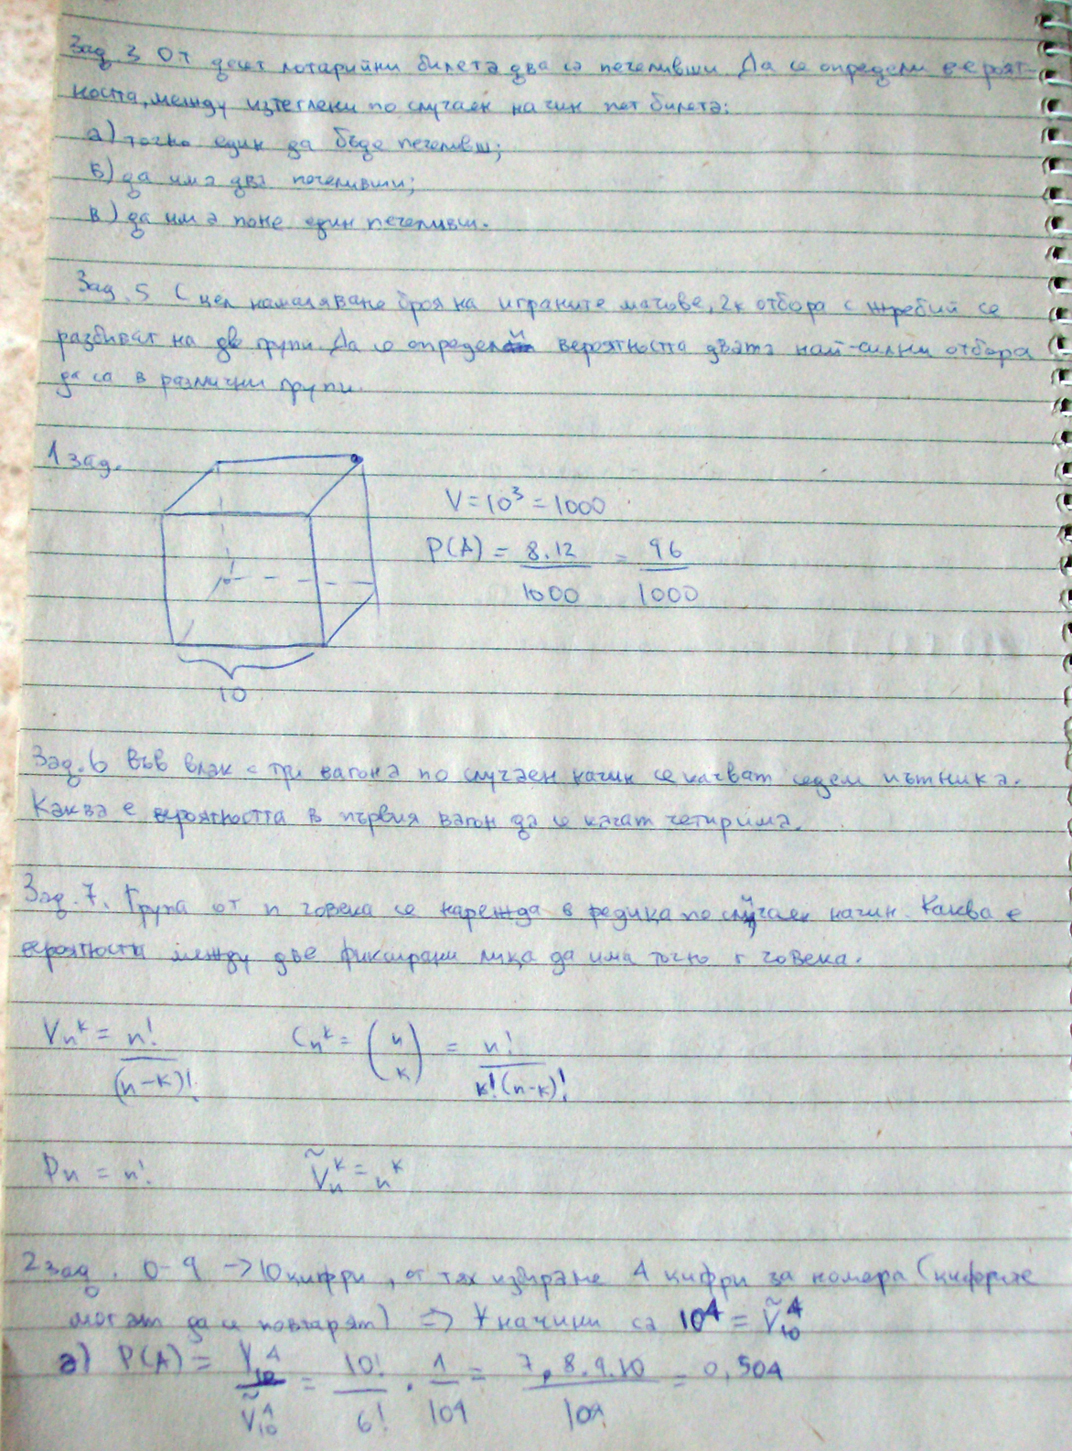 Зад. 3 От десет лотарийни билета два са печеливши. Да се определи вероят-
ността, между изтеглени по случаен начин пет билета:
а) точно един да бъде печеливш;
б) да има два печеливши;
в) да има поне един печеливш.
Зад. 5 С цел намаляване броя на играните мачове, 2к отбора с жребий се
разбиват на две групи. Да се определи вероятността двата най-силни отбора
да са в различни групи.
1 зад.
V = 10³ = 1000
P(A) = 8.12/1000 = 96/1000
10
Зад. 6 Във влак с три вагона по случаен начин се качват седем пътника.
Каква е вероятността в първия вагон да се качат четирима.
Зад. 7. Група от n човека се нарежда в редица по случаен начин. Каква е
вероятността между две фиксирани лица да има точно r човека.
Vₙᵏ = n!/(n-k)! Cₙᵏ = (n k) = n!/k!(n-k)!
Pn = n! Ṽₙᵏ = nᵏ
2 зад. 0-9 -> 10 цифри, от тях избираме 4 цифри за номера (цифрите
могат да се повтарят) => # начини са 10⁴ = Ṽ₁₀⁴
а) P(A) = V₁₀⁴/Ṽ₁₀⁴ = 10!/6! . 1/10⁴ = 7.8.9.10/10⁴ = 0,504